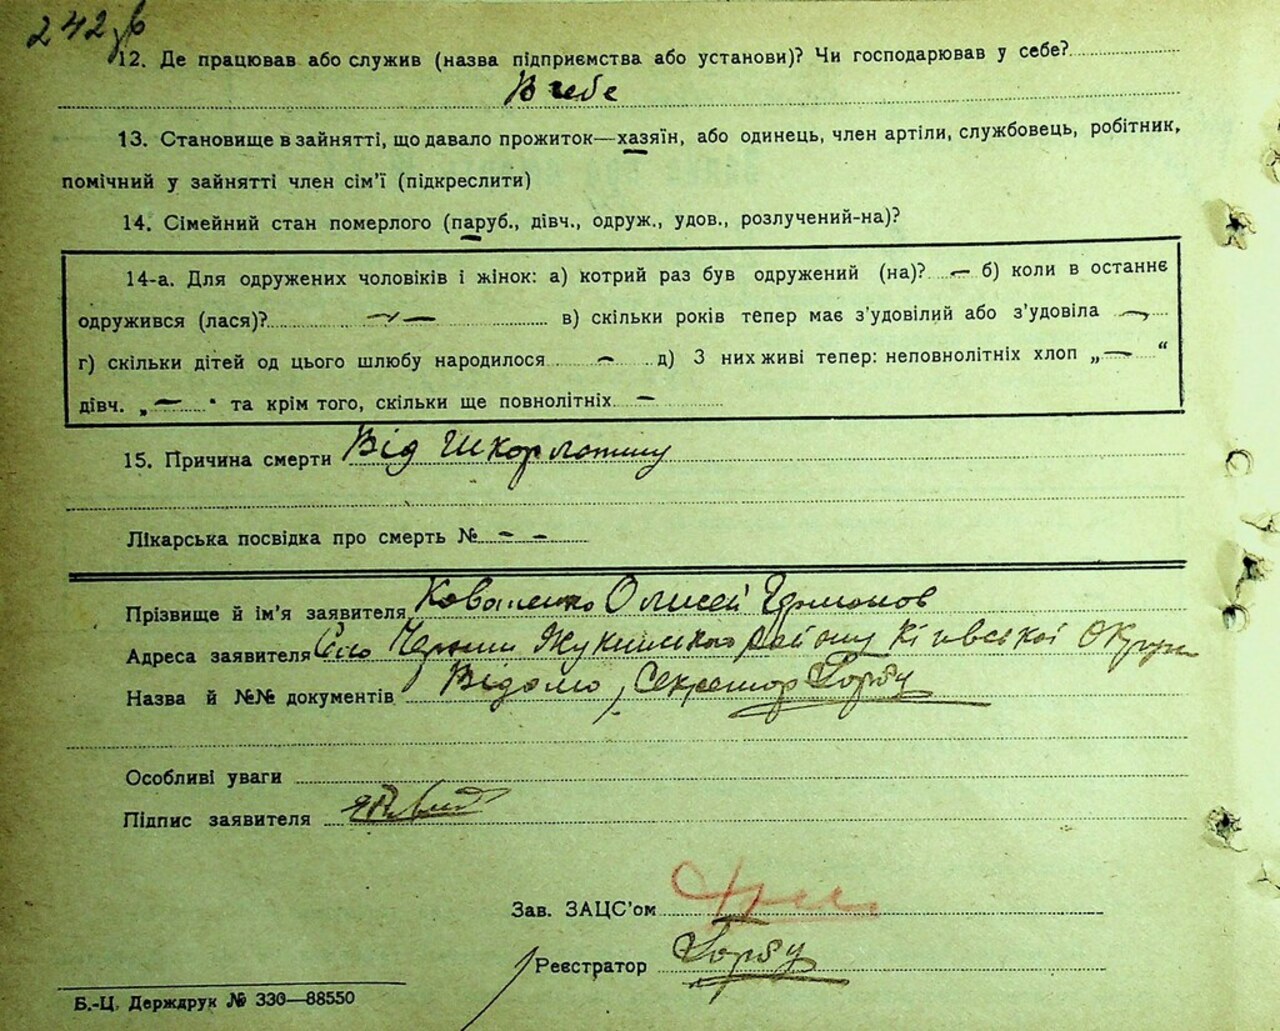 242 зв
12. Де працював або служив (назва підприємства або установи)? Чи господарював у себе?
В себе
13. Становище в зайнятті, що давало прожиток—хазяїн, або одинець, член артіли, службовець, робітник,
помічний у зайнятті член сім’ї (підкреслити)
14. Сімейний стан померлого (паруб., дівч., одруж., удов., розлучений-на)?
14-а. Для одружених чоловіків і жінок: а) котрий раз був одружений (на)? — б) коли в останнє
одружився (лася)? — в) скільки років тепер має з’удовілий або з’удовіла —
г) скільки дітей од цього шлюбу народилося — д) З них живі тепер: неповнолітніх хлоп „—“
дівч. „—“ та крім того, скільки ще повнолітніх —
15. Причина смерти Від Шкорлатини
Лікарська посвідка про смерть № – –
Прізвище й ім’я заявителя Коваленко Олисей
Адреса заявителя Село району Київської Округи
Назва й №№ документів Відомо, Секретар Горбу
Особливі уваги
Підпис заявителя
Зав. ЗАЦС’ом
Реєстратор Горбу
Б.-Ц. Держдрук № 330—88550